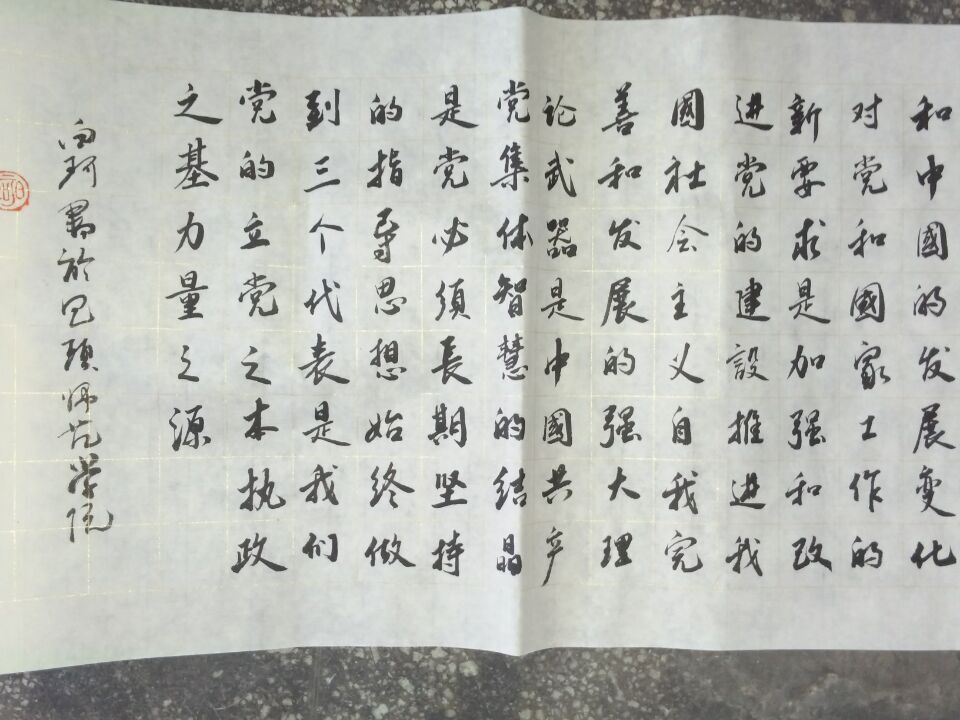 和中國的发展变化
对党和國家工作的
新要求是加强和改
进党的建設推进我
國社会主义自我完
善和发展的强大理
论武器是中國共产
党集体智慧的结晶
是党必须長期坚持
的指导思想始终做
到三个代表是我们
党的立党之本执政
之基力量之源
珂書於 師范学院